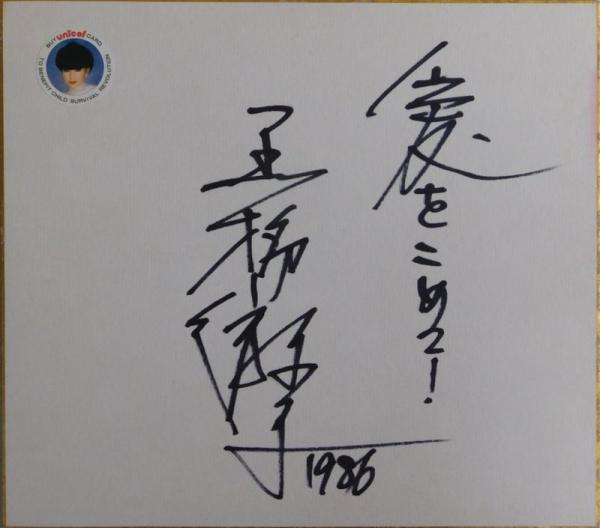 BUY unicef CARD
TO BENEFIT CHILD SURVIVAL REVOLUTION
愛をこめて!
黒柳徹子
1986